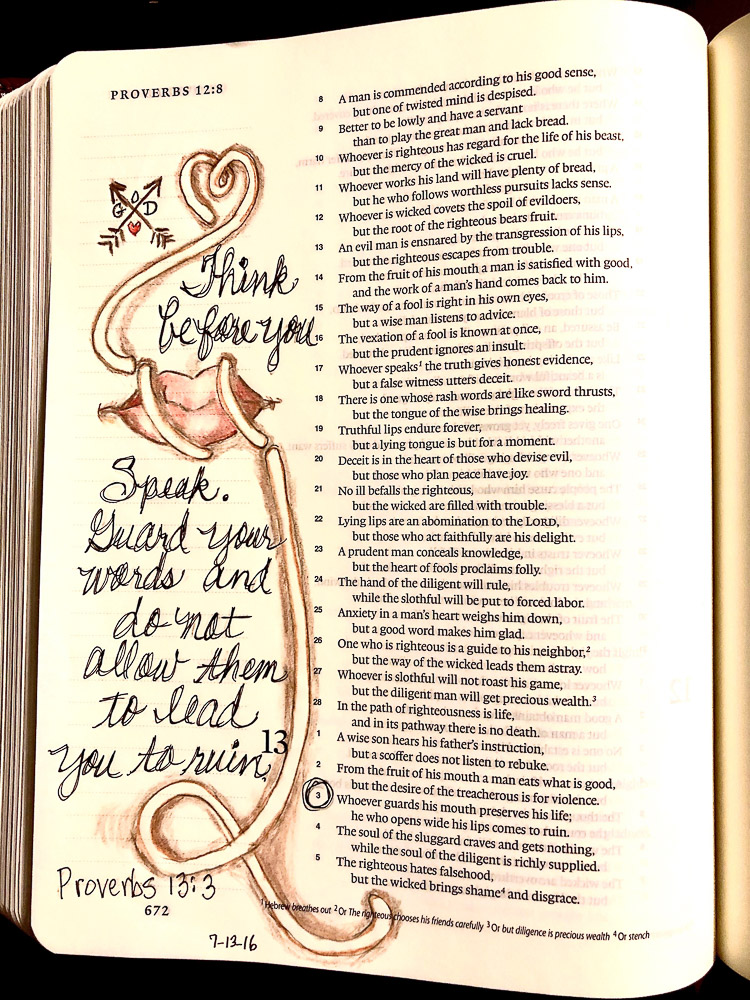 PROVERBS 12:8
G O D
Think
before you
Speak.
Guard your
words and
do not
allow them
to lead
you to ruin,
Proverbs 13:3
672
7-13-16
8 A man is commended according to his good sense,
but one of twisted mind is despised.
9 Better to be lowly and have a servant
than to play the great man and lack bread.
10 Whoever is righteous has regard for the life of his beast,
but the mercy of the wicked is cruel.
11 Whoever works his land will have plenty of bread,
but he who follows worthless pursuits lacks sense.
12 Whoever is wicked covets the spoil of evildoers,
but the root of the righteous bears fruit.
13 An evil man is ensnared by the transgression of his lips,
but the righteous escapes from trouble.
14 From the fruit of his mouth a man is satisfied with good,
and the work of a man's hand comes back to him.
15 The way of a fool is right in his own eyes,
but a wise man listens to advice.
16 The vexation of a fool is known at once,
but the prudent ignores an insult.
17 Whoever speaks¹ the truth gives honest evidence,
but a false witness utters deceit.
18 There is one whose rash words are like sword thrusts,
but the tongue of the wise brings healing.
19 Truthful lips endure forever,
but a lying tongue is but for a moment.
20 Deceit is in the heart of those who devise evil,
but those who plan peace have joy.
21 No ill befalls the righteous,
but the wicked are filled with trouble.
22 Lying lips are an abomination to the LORD,
but those who act faithfully are his delight.
23 A prudent man conceals knowledge,
but the heart of fools proclaims folly.
24 The hand of the diligent will rule,
while the slothful will be put to forced labor.
25 Anxiety in a man's heart weighs him down,
but a good word makes him glad.
26 One who is righteous is a guide to his neighbor,²
but the way of the wicked leads them astray.
27 Whoever is slothful will not roast his game,
but the diligent man will get precious wealth.³
28 In the path of righteousness is life,
and in its pathway there is no death.
13
1 A wise son hears his father's instruction,
but a scoffer does not listen to rebuke.
2 From the fruit of his mouth a man eats what is good,
but the desire of the treacherous is for violence.
3 Whoever guards his mouth preserves his life;
he who opens wide his lips comes to ruin.
4 The soul of the sluggard craves and gets nothing,
while the soul of the diligent is richly supplied.
5 The righteous hates falsehood,
but the wicked brings shame⁴ and disgrace.
¹ Hebrew breathes out ² Or The righteous chooses his friends carefully ³ Or but diligence is precious wealth ⁴ Or stench